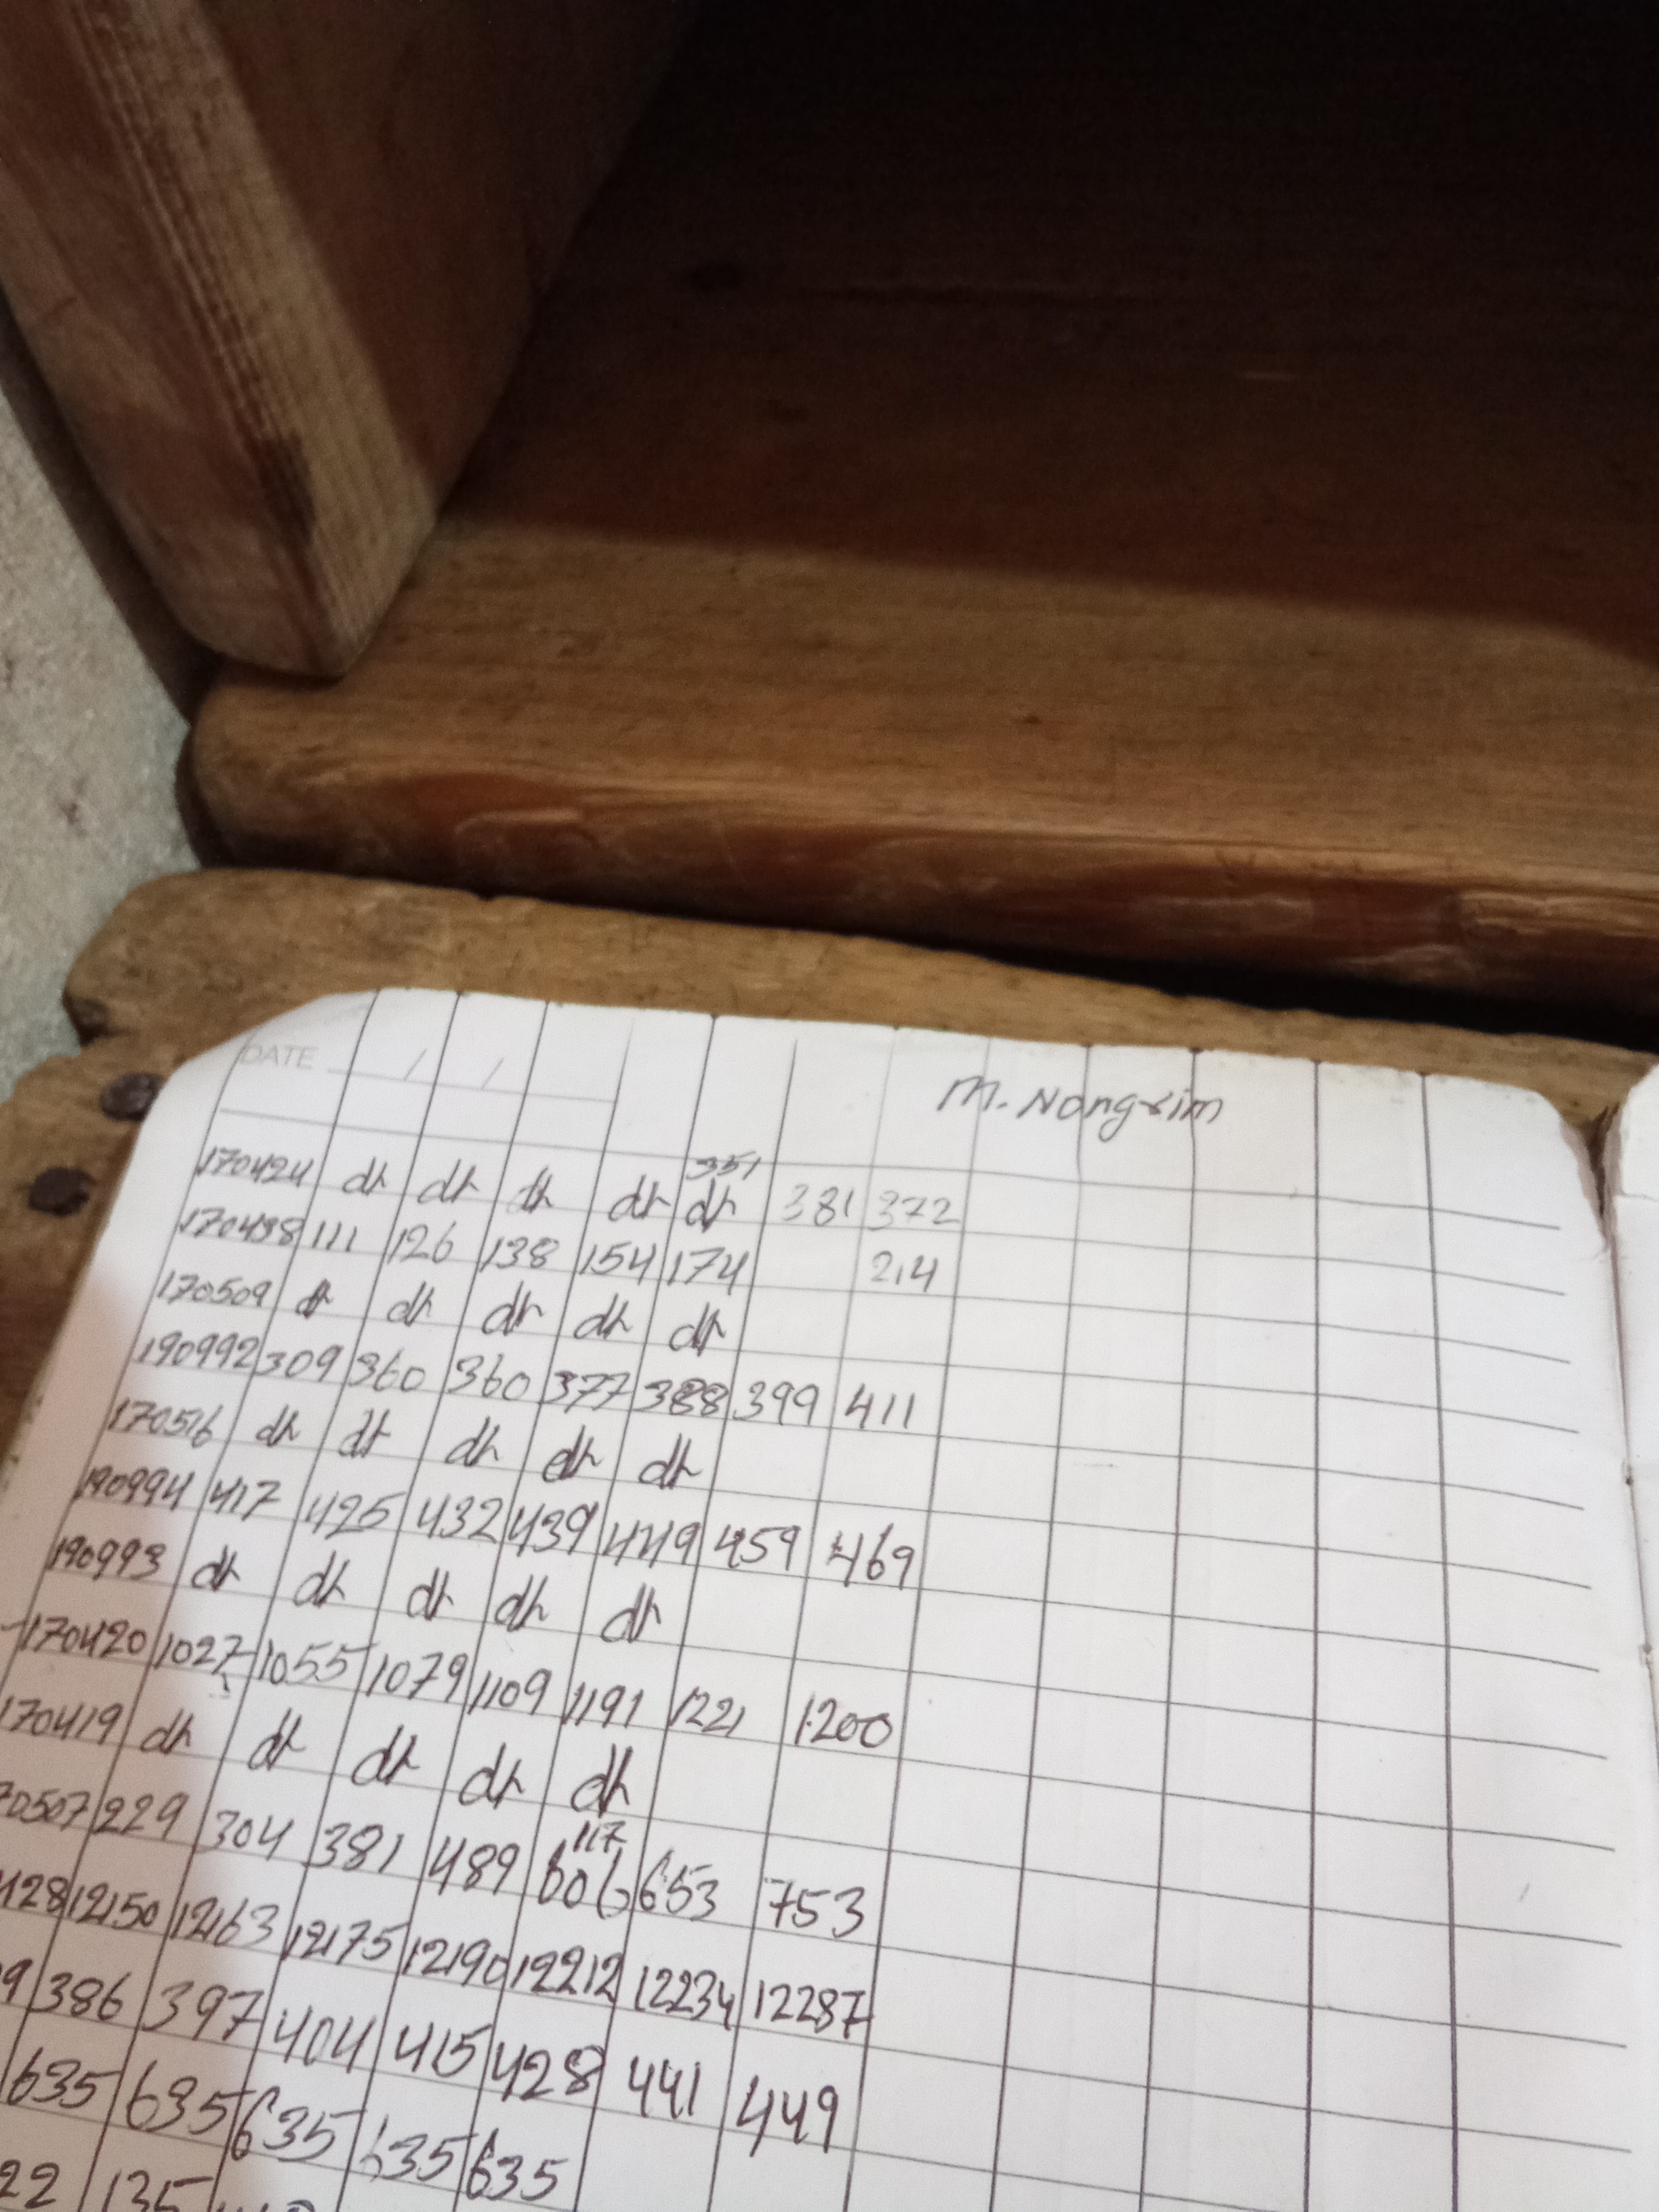 DATE / /
M. Nongrim
351
170424 dr dr dr dr dr 381 372
170438 111 126 138 154 174 214
170509 dr dr dr dr dr
190992 309 360 360 377 388 399 411
170516 dr dr dr dr dr
190994 417 425 432 439 449 459 469
190993 dr dr dr dr dr
170420 1027 1055 1079 1109 1191 1221 1200
170419 dr dr dr dr dr
70507 229 304 381 489 606 653 753
117
428 12150 12163 12175 12190 12212 12234 12287
9 386 397 404 415 428 441 449
635 635 635 635 635
22 135